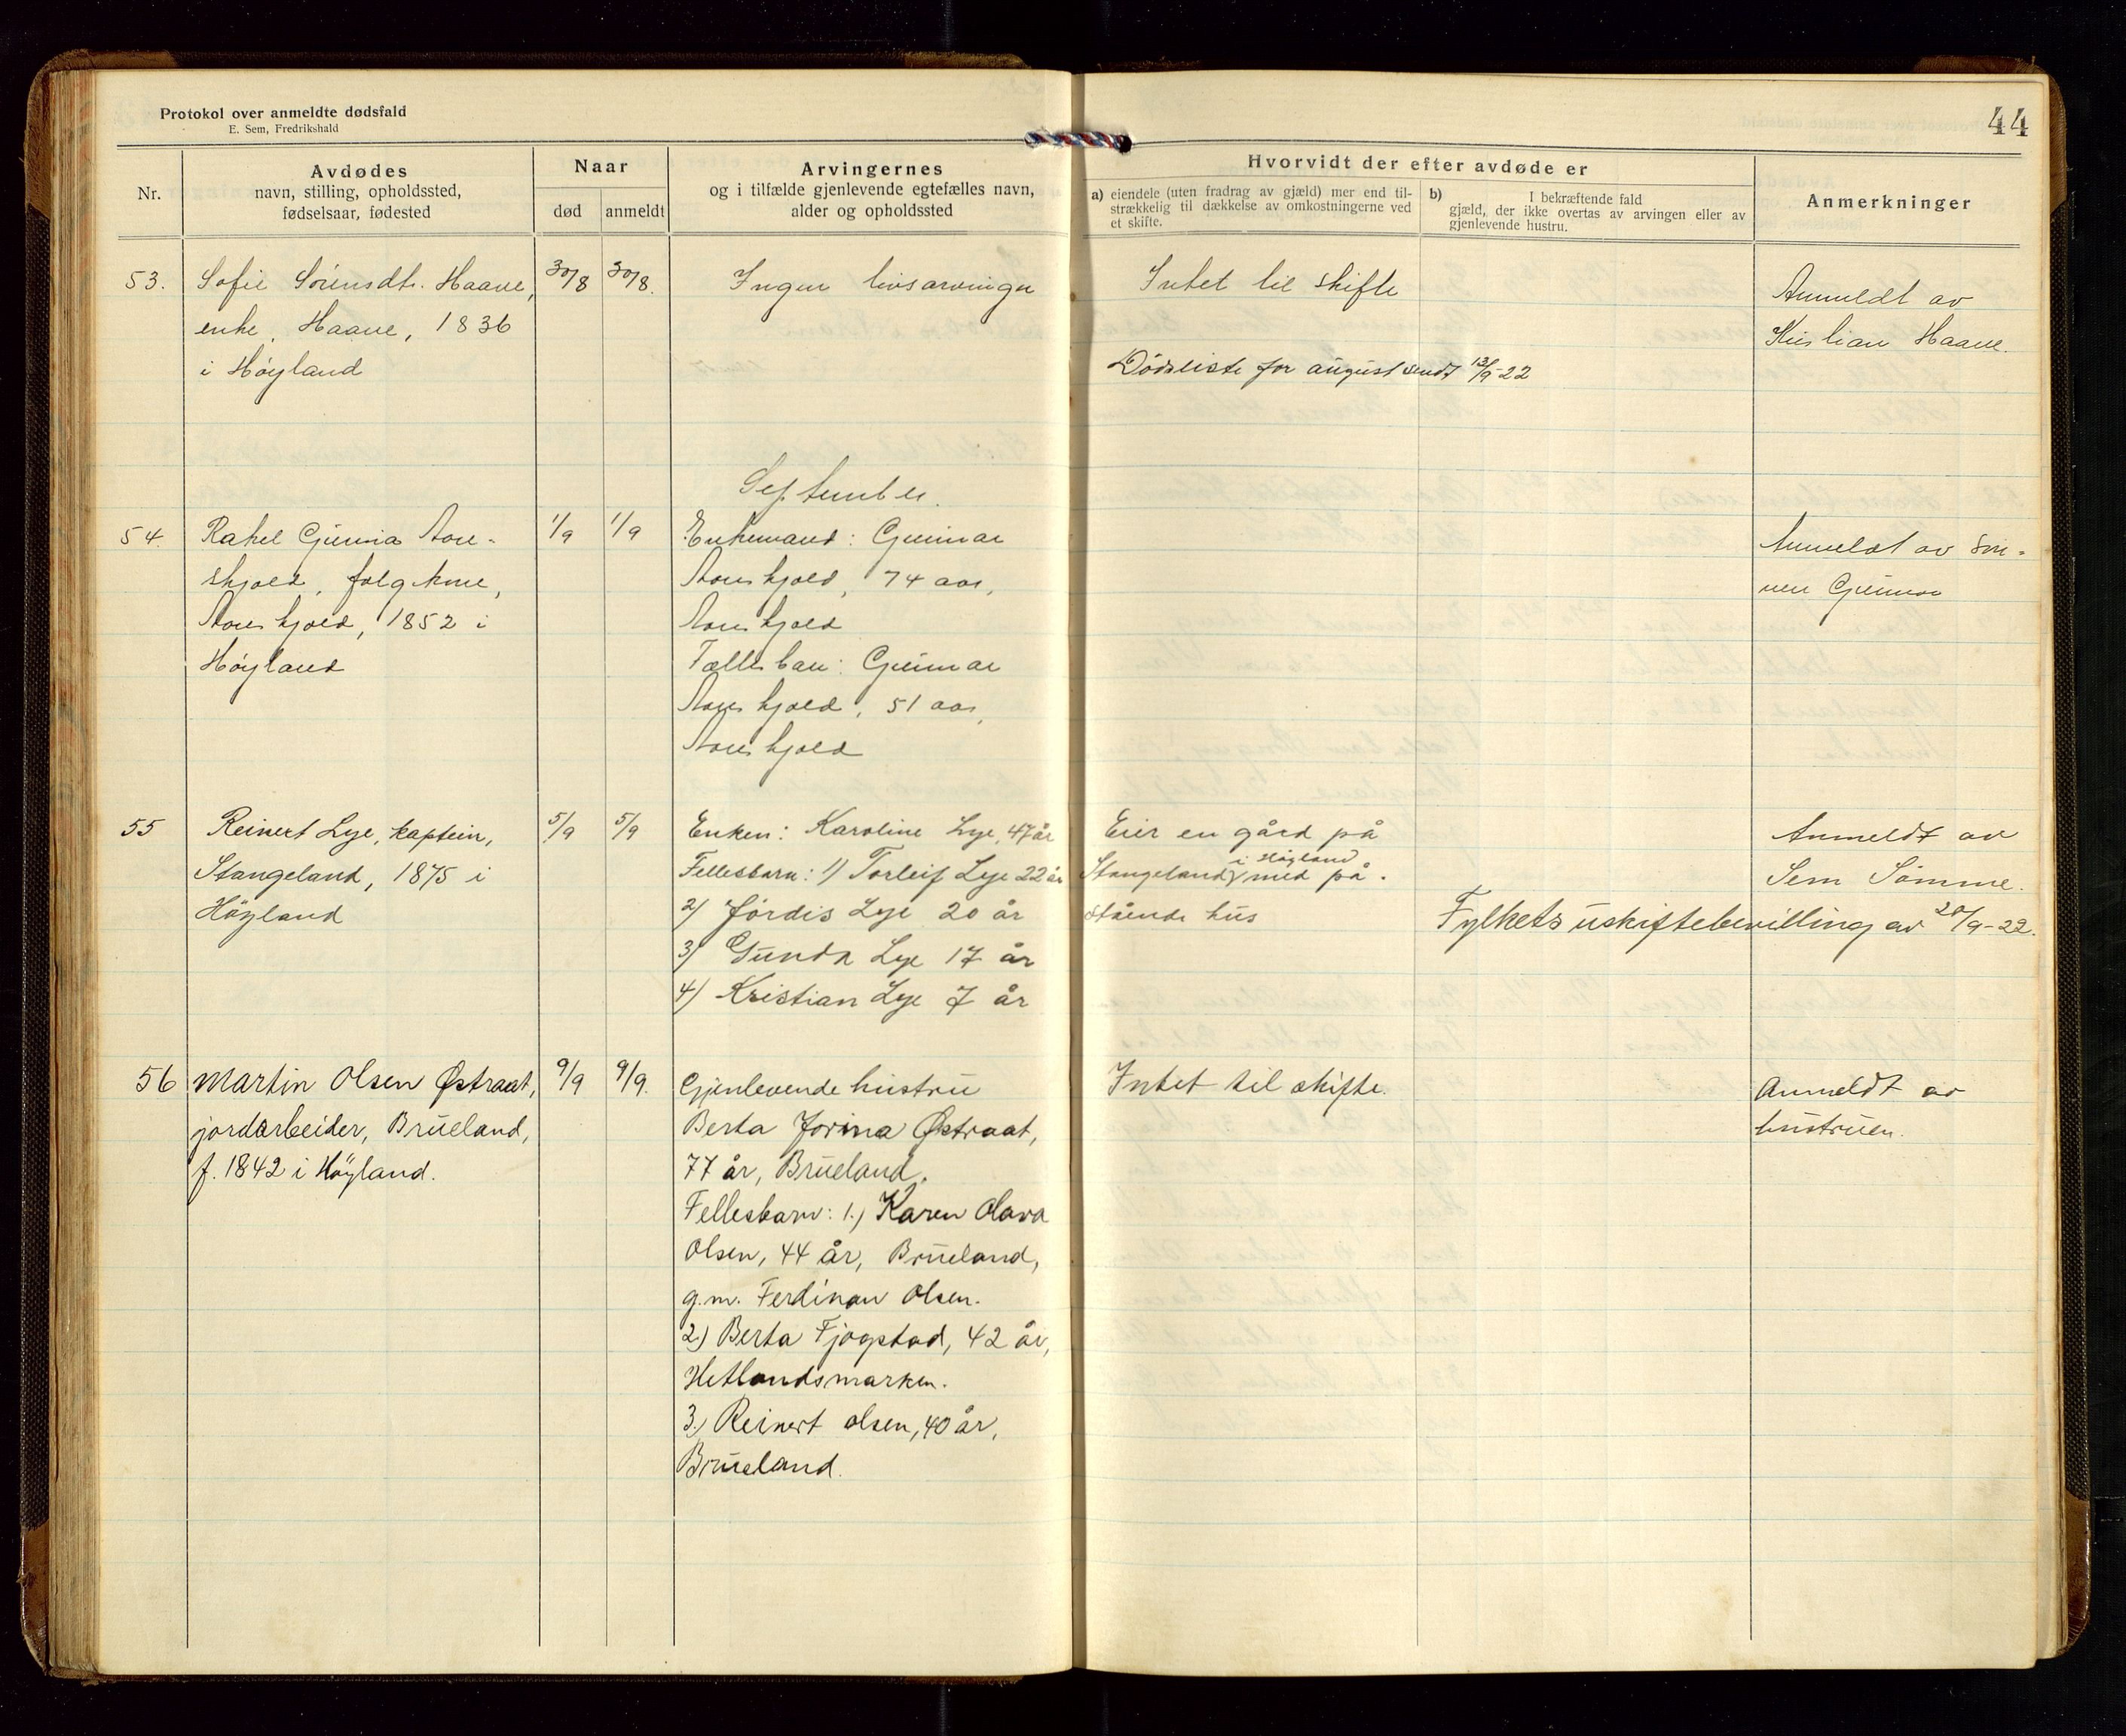 Protokol over anmeldte dødsfald
E. Sem, Fredrikshald
44
Nr.
Avdødes
navn, stilling, opholdssted,
fødselsaar, fødested
Naar
død
anmeldt
Arvingernes
og i tilfælde gjenlevende egtefælles navn,
alder og opholdssted
Hvorvidt der efter avdøde er
a) eiendele (uten fradrag av gjæld) mer end til-
strækkelig til dækkelse av omkostningerne ved
et skifte.
b) I bekræftende fald
gjæld, der ikke overtas av arvingen eller av
gjenlevende hustru.
Anmerkninger
53.
Sofie Sörensdtr. Haave,
enke, Haave, 1836
i Høyland
30/8
30/8.
Ingen livsarvinger
Intet til skifte
Dödsliste for august sendt 13/9-22
Anmeldt av
Kristian Haave.
September.
54.
Rakel Gurina
folgekone,
1852 i
Høyland
1/9
1/9
Enkemand: Gunnar
74 aar,
Fællesbarn: Gunnar
51 aar,
Anmeldt av søn-
nen Gunnar
55
Reinert Lye, kaptein,
Stangeland, 1875 i
Höyland
5/9
5/9
Enken: Karoline Lye, 47 år
Fellesbarn: 1) Torleif Lye 22 år
2) Jördis Lye 20 år
3) Gunda Lye 17 år
4) Kristian Lye 7 år
Eier en gård på
i Höyland
Stangeland med på-
stående hus
Fylkets uskiftebevilling av 20/9-22.
Anmeldt av
Sem Sömme.
56
Martin Olsen Østraat,
jordarbeider, Brueland,
f. 1842 i Höyland.
9/9
9/9.
Gjenlevende hustru
Berta Jorina Østraat,
77 år, Brueland.
Fellesbarn: 1.) Karen Olava
Olsen, 44 år, Brueland,
g.m. Ferdinan Olsen.
2) Berta Fjogstad, 42 år,
Hetlandsmarken.
3.) Reinert Olsen, 40 år,
Brueland.
Intet til skifte.
Anmeldt av
hustruen.